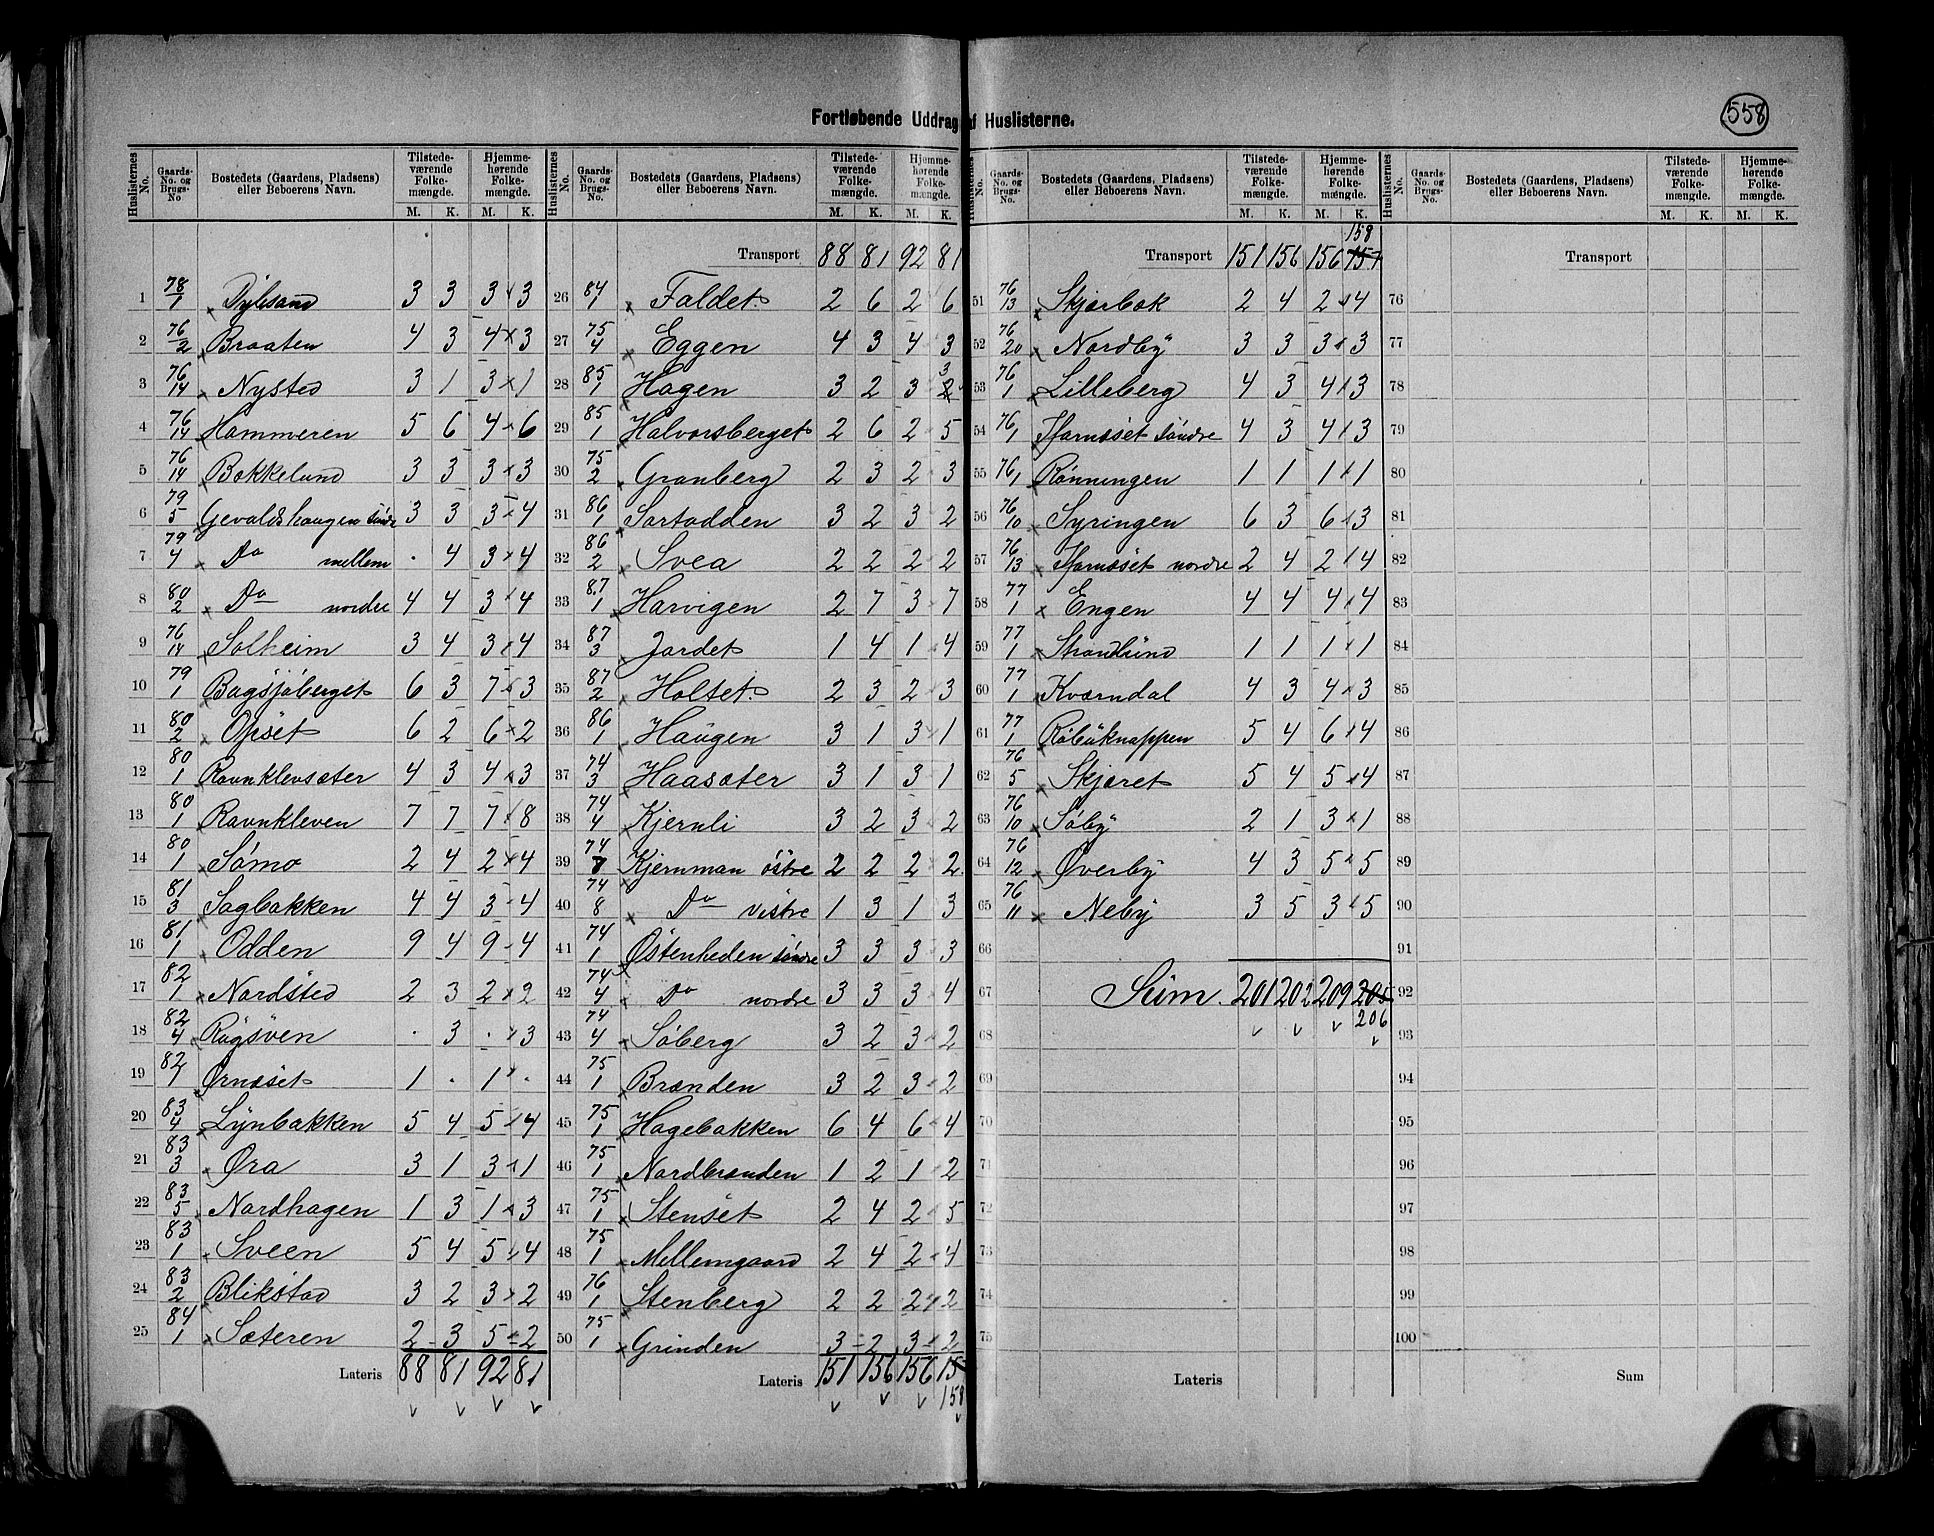 558
Fortløbende Uddrag af Huslisterne.
Huslisternes No. Gaards-No. og Brugs-No Bostedets (Gaardens, Pladsens) eller Beboerens Navn. Tilstedeværende Folkemængde. M. K. Hjemmehørende Folkemængde. M. K.
1 78/1 3 3 3 3
2 76/2 Braaten 4 3 4 3
3 76/14 Nysted 3 1 3 1
4 76/14 Hammeren 5 6 4 6
5 76/14 Bakkelund 3 3 3 3
6 79/5 Gevaldshaugen søndre 3 3 3 4
7 79/4 Do mellem . 4 3 4
8 80/2 Do nordre 4 4 3 4
9 76/14 Solheim 3 4 3 4
10 79/1 Bagsjøberget 6 3 7 3
11 80/2 Opset 6 2 6 2
12 80/1 Ravnklevsæter 4 3 4 3
13 80/1 Ravnkleven 7 7 7 8
14 80/1 Sømo 2 4 2 4
15 81/3 Sagbakken 4 4 3 4
16 81/1 Odden 9 4 9 4
17 82/1 Nordsted 2 3 2 2
18 82/4 Røgsven . 3 . 3
19 82/1 Ørnæset 1 . 1 .
20 83/4 Lynbakken 5 4 5 4
21 83/3 Øra 3 1 3 1
22 83/5 Nordhagen 1 3 1 3
23 83/1 Sveen 5 4 5 4
24 83/2 Blikstad 3 2 3 2
25 84/1 Sæteren 2 3 5 2
Lateris 88 81 92 81
Huslisternes No. Gaards-No. og Brugs-No. Bostedets (Gaardens, Pladsens) eller Beboerens Navn. Tilstedeværende Folkemængde. M. K. Hjemmehørende Folkemængde. M. K.
Transport 88 81 92 81
26 84/1 Faldet 2 6 2 6
27 75/4 Eggen 4 3 4 3
28 85/1 Hagen 3 2 3 2 3
29 85/1 Halvorsberget 2 6 2 5
30 75/2 Granberg 2 3 2 3
31 86/1 Sortodden 3 2 3 2
32 86/2 Svea 2 2 2 2
33 87/1 Harvigen 2 7 3 7
34 87/3 Jordet 1 4 1 4
35 87/2 Holtet 2 3 2 3
36 86/1 Haugen 3 1 3 1
37 74/3 Haasæter 3 1 3 1
38 74/4 Kjernli 3 2 3 2
39 74 Kjernman østre 2 2 2 2
40 74/8 Do vestre 1 3 1 3
41 74/1 Østenheden søndre 3 3 3 3
42 74/4 Do nordre 3 3 3 4
43 74/4 Søberg 3 2 3 2
44 75/1 Brænden 3 2 3 2
45 75/1 Hagebakken 6 4 6 4
46 75/1 Nordbrænden 1 2 1 2
47 75/1 Stenset 2 4 2 5
48 75/1 Mellemgaard 2 4 2 4
49 76/1 Stenberg 2 2 2 2
50 75/1 Grinden 3 2 3 2
Lateris 151 156 156 158
Huslisternes No. Gaards-No. og Brugs-No. Bostedets (Gaardens, Pladsens) eller Beboerens Navn. Tilstedeværende Folkemængde. M. K. Hjemmehørende Folkemængde. M. K.
158
Transport 151 156 156 157
51 76/13 Skjærbæk 2 4 2 4
52 76/20 Nordby 3 3 3 3
53 76/1 Lilleberg 4 3 4 3
54 76/1 søndre 4 3 4 3
55 76/1 Rønningen 1 1 1 1
56 76/10 Syringen 6 3 6 3
57 76/13 nordre 2 4 2 4
58 77/1 Engen 4 4 4 4
59 77/1 Strandlund 1 1 1 1
60 77/1 Kværndal 4 3 4 3
61 77/1 Røbuknappen 5 4 6 4
62 76/5 Skjæret 5 4 5 4
63 76/10 Søby 2 1 3 1
64 76/12 Øverby 4 3 5 5
65 76/11 Neby 3 5 3 5
66
67 Sum. 201 202 209 205
206
68
69
70
71
72
73
74
75
Lateris
Huslisternes No. Gaards-No. og Brugs-No. Bostedets (Gaardens, Pladsens) eller Beboerens Navn. Tilstedeværende Folkemængde. M. K. Hjemmehørende Folkemængde. M. K.
Transport
76
77
78
79
80
81
82
83
84
85
86
87
88
89
90
91
92
93
94
95
96
97
98
99
100
Sum